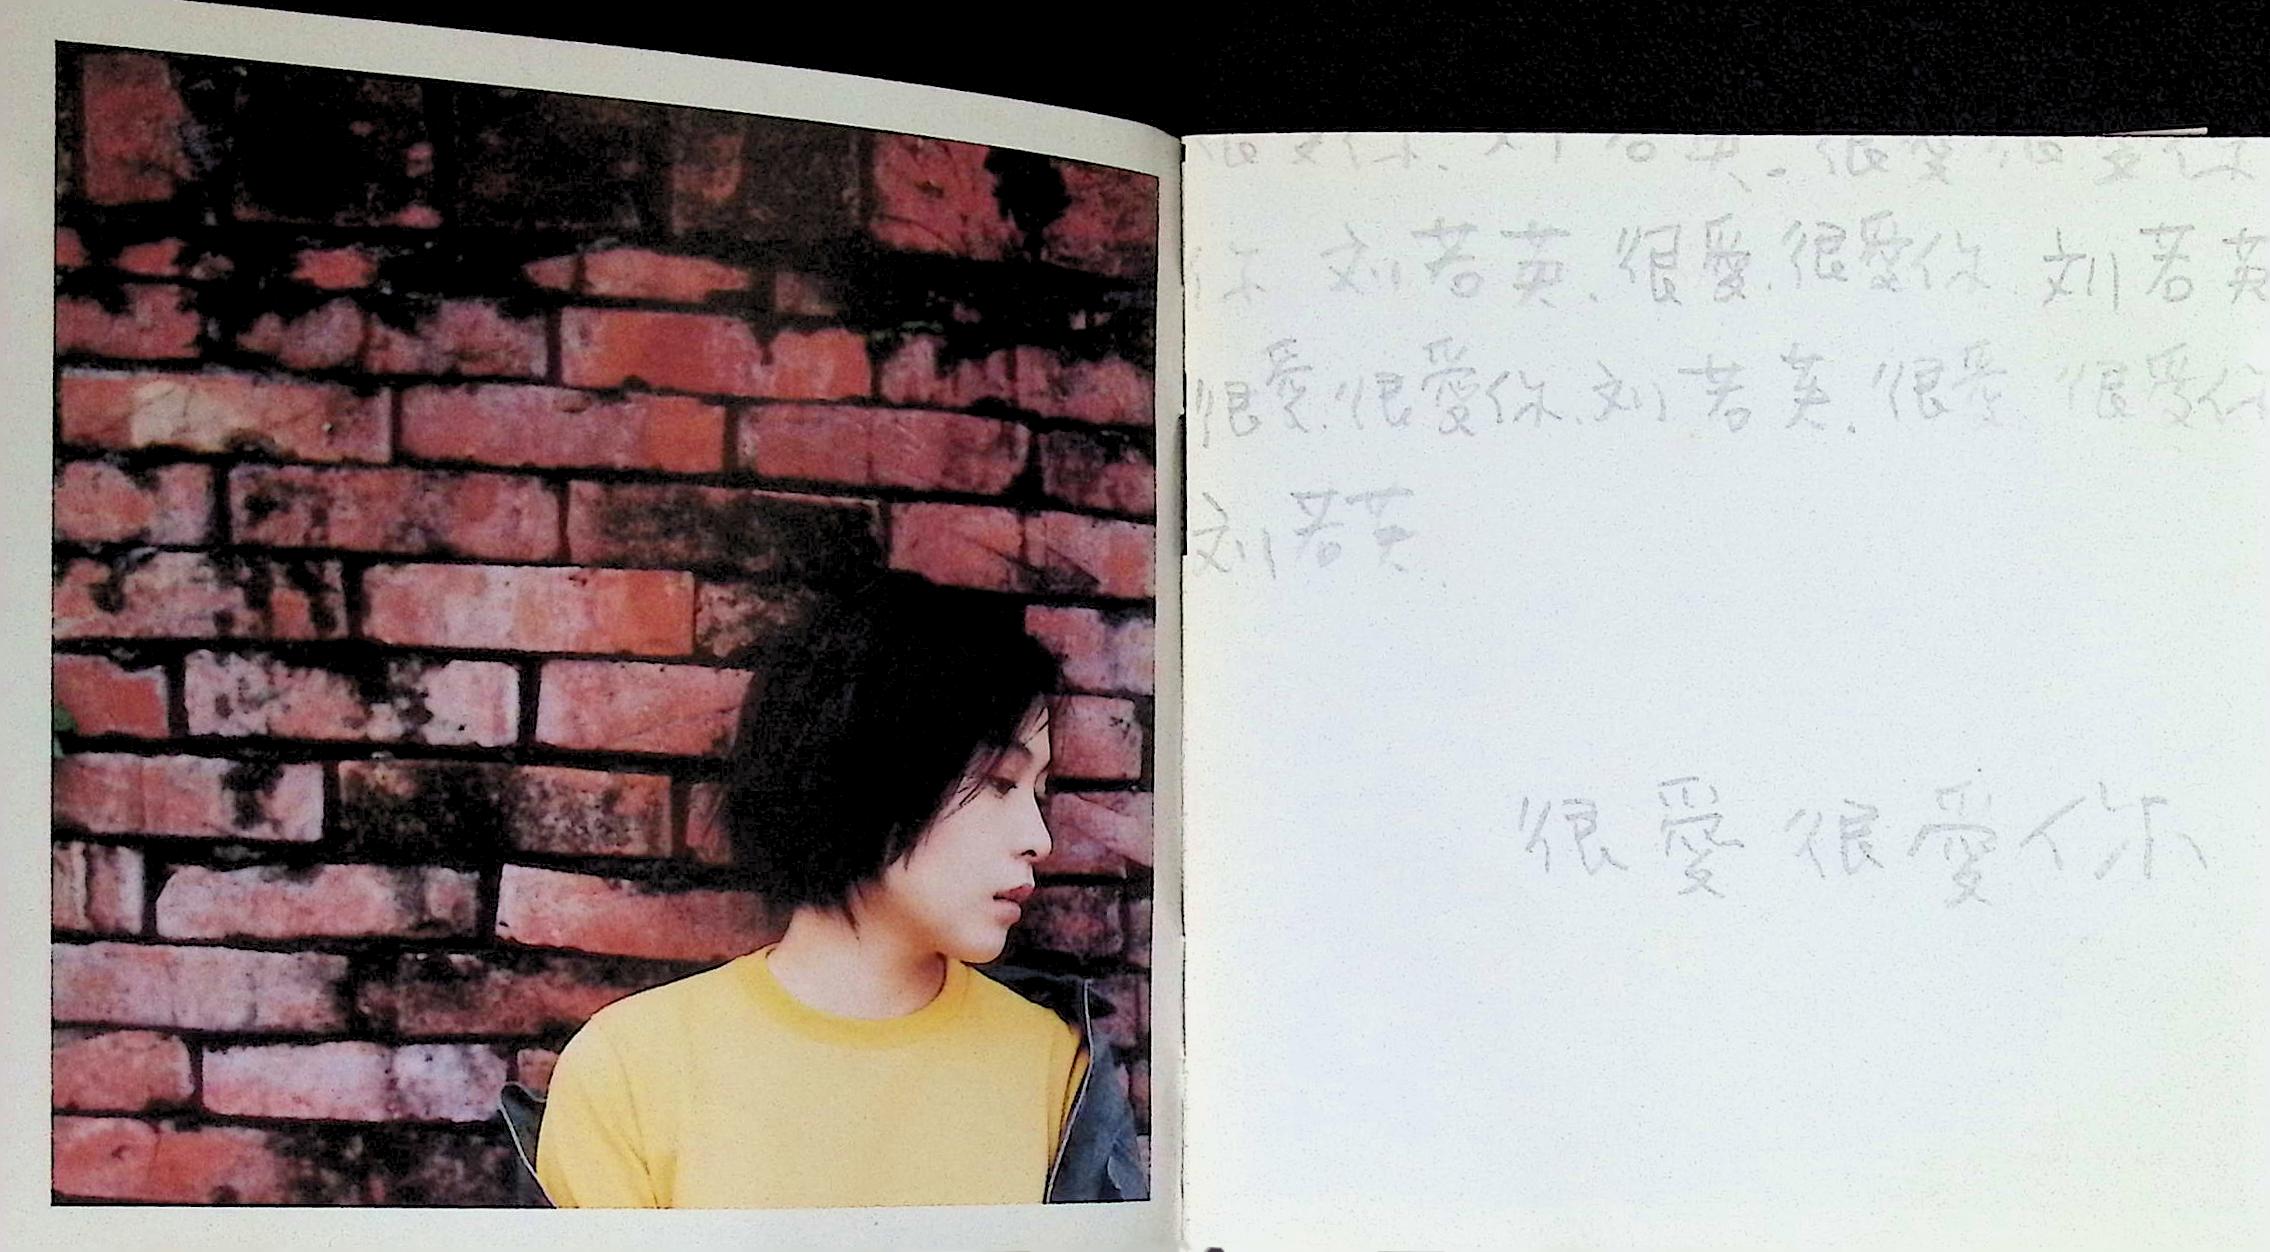 很愛你. 刘若英. 很愛 很愛你
你 刘若英. 很愛. 很愛你 刘若英
很愛. 很愛你. 刘若英. 很愛 很愛你
刘若英.
很愛很愛你